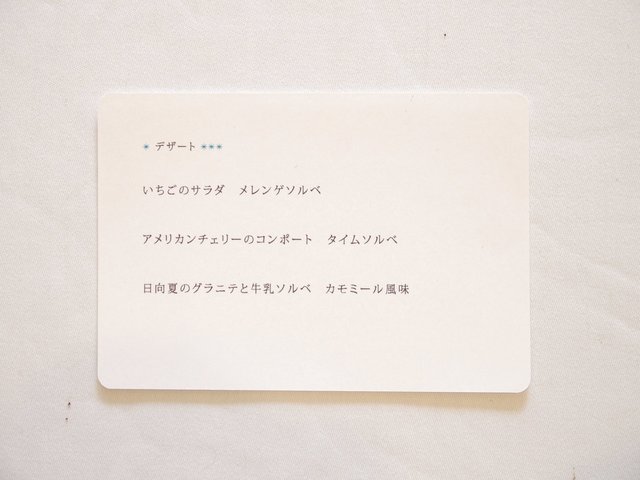 * デザート ***
いちごのサラダ　メレンゲソルベ
アメリカンチェリーのコンポート　タイムソルベ
日向夏のグラニテと牛乳ソルベ　カモミール風味